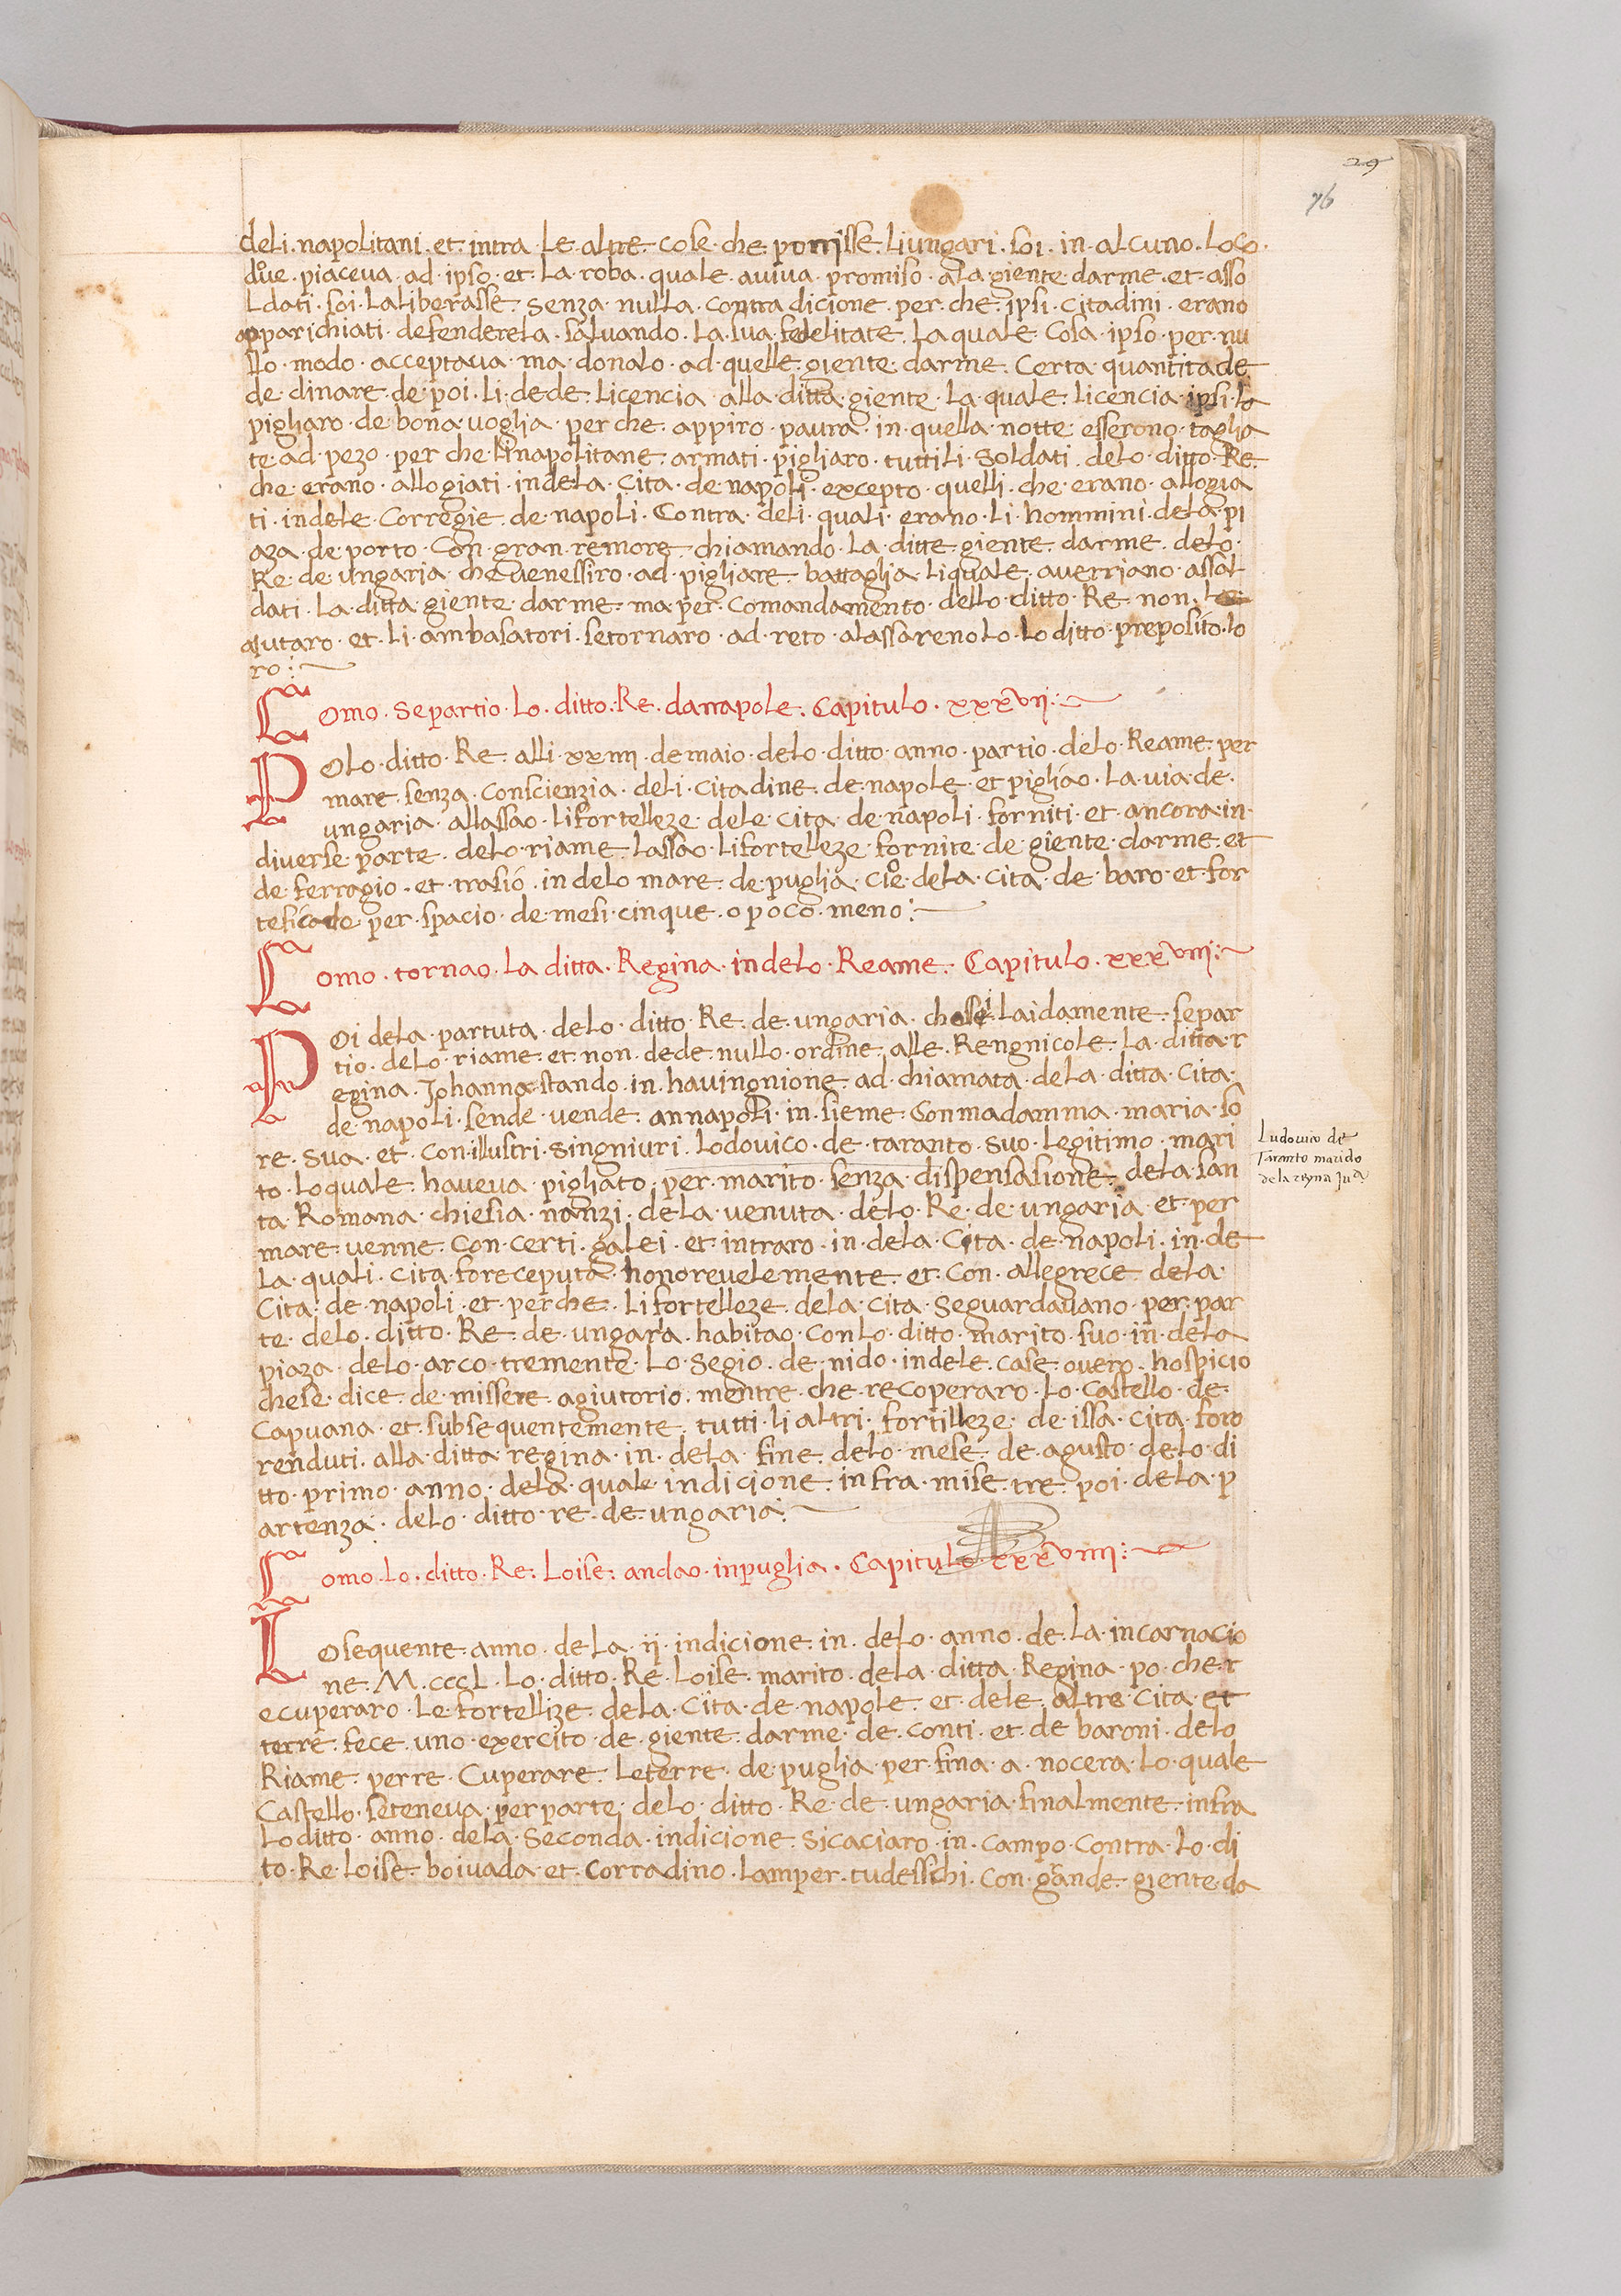 29
76
deli · napolitani · et · intra · le · altre · cose · che · ponisse · li ungari · soi · in · alcuno · loco ·
dove · piaceva · ad · ipso · et · la · roba · quale · aviva · promiso · ala · giente · darme · et · asso
ldati · soi · la liberasse · senza · nulla · contra dicione · per · che · ipsi · citadini · erano
apparichiati · defenderela · salvando · la · sua · fedelitate · la quale · cosa · ipso · per · nu
llo · modo · acceptava · ma · donalo · ad · quelle · giente · darme · certa · quantitade
de · dinare · de · poi · li · dede · licencia · alla · ditta · giente · la · quale · licencia · ipsi · la
pigliaro · de bona · voglia · per che · appiro · paura · in · quella · notte · esserono · taglia
te · ad · pezo · per che · li napolitane · armati · pigliaro · tutti li · soldati · delo · ditto · Re
che · erano · allogiati · indela · cita · de napoli · excepto · quelli · che · erano · allogia
ti · indele · Corregie · de napoli · Contra · deli · quali · erano · li · hommini · dela · pi
aza · de porto · con · gran · remore · chiamando · la · ditte · giente · darme · delo ·
Re · de ungaria · che venessiro · ad · pigliare · battaglia · li quale · averriano · assal
dati · la · ditta · giente · darme · ma · per · comandamento · dello · ditto · Re · non ·
ajutaro · et · li · ambasatori · se tornaro · ad · reto · alassareno lo · lo ditto · preposito · lo
ro :~
Como · se partio · lo · ditto · Re · da napole · Capitulo · xxxvij :~
Polo · ditto · Re · alli · xxiiii · de maio · delo · ditto · anno · partio · delo · Reame · per
mare · senza · conscienzia · deli · citadine · de napole · et pigliao · la · via · de ·
ungaria · allassao · li fortelleze · dele · cita · de napoli · forniti · et · ancora · in ·
diverse · parte · delo · riame · lassao · li fortelleze · fornite · de · giente · darme · et
de · ferragio · et · trasio · in delo mare · de puglia · cioe · dela · cita · de · baro · et · for
teficato · per · spacio · de mesi · cinque · o poco · meno :~
Como · tornao · la ditta · Regina · indelo · Reame · Capitulo · xxxviij :~
Poi dela · partuta · delo · ditto · Re · de · ungaria · che si · laidamente · separ
tio · delo · riame · et · non · dede · nullo · ordine · alle · Rengnicole · la · ditta · r
egina · Johanna · stando · in · havingnione · ad · chiamata · dela · ditta · cita ·
de · napoli · sende · vende · annapoli · in · sieme · con madamma · maria · so
re · sua · et · con · illustri · singniuri · lodovico · de · taranto · suo · legitimo · mari
to · lo quale · haveva · pigliato · per · marito · senza · dispensasione · dela · san
ta · Romana · chiesia · nanzi · dela · venuta · delo · Re · de · ungaria · et · per
mare · venne · con · certi · galei · et · intraro · in · dela · cita · de · napoli · in · de
la · quali · cita · fo receputa · honorevelemente · et · con · allegrece · dela ·
cita · de · napoli · et · perche · li fortelleze · dela · cita · se guardavano · per · par
te · delo · ditto · Re · de · ungaria · habitao · con lo · ditto · marito · suo · in · dela
piaza · delo · arco · tremente · lo · segio · de · nido · indele · case · overo · hospicio
che se · dice · de · missere · agiutorio · mentre · che · recoperaro · lo · castello · de ·
capuana · et · subsequentemente · tutti · li altri · fortilleze · de · issa · cita · foro
renduti · alla · ditta · regina · in · dela · fine · delo · mese · de · agusto · delo · di
tto · primo · anno · dela · quale · indicione · infra · mise · tre · poi · dela · p
artenza · delo · ditto · re · de · ungaria :~
Ludovico de
Taranto marido
de la reyna Jua
Como · lo · ditto · Re · loise · andao · in puglia · Capitulo · xxxviiii :~
Lo sequente · anno · de la · ij · indicione · in · delo · anno · de · la · incarnacio
ne · M · cccL · lo · ditto · Re · loise · marito · dela · ditta · Regina · po · che · r
ecuperaro · le fortellize · dela · cita · de · napole · et · dele · altre · cita · et
terre · fece · uno · exercito · de · giente · darme · de · conti · et · de baroni · delo
Riame · per re · cuperare · le terre · de · puglia · per · fina · a · nocera · lo · quale
castello · se teneva · per parte · delo · ditto · Re · de · ungaria · finalmente · infra
lo ditto · anno · dela · seconda · indicione · sicaciaro · in · campo · contra · lo · di
to · Re · loise · boivada · et · corradino · lamper · tudesschi · con · grande · giente · da